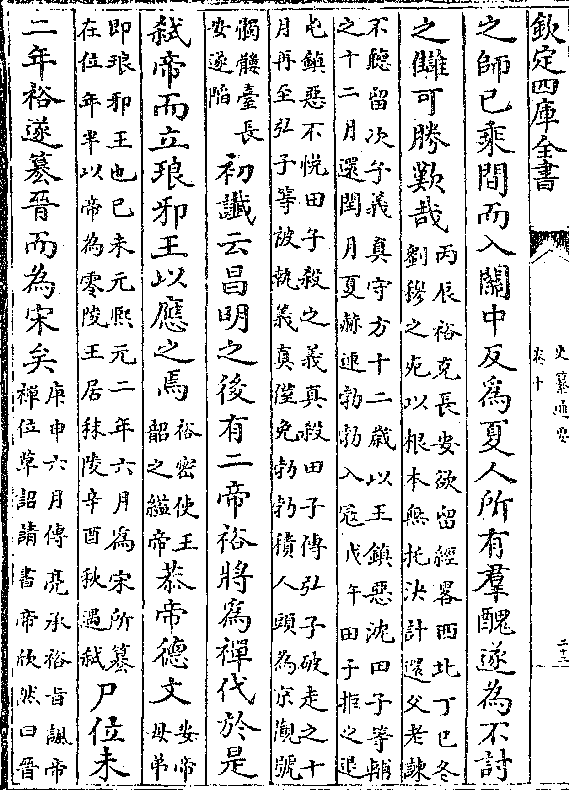 欽定四庫全書
史纂通要
卷十
二十三
之師已乘間而入關中反為夏人所有羣醜遂為不討
之讎可勝歎哉
丙辰裕克長安欲留經畧西北丁巳冬
劉穆之死以根本無托決計還父老諫
不聽留次子義真守方十二歲以王鎮惡沈田子等輔
之十二月還閏月夏赫連勃勃入寇戊午田子拒之退
屯鎮惡不悅田子殺之義真殺田子傅弘子破走之十
月再至弘子等被執義真僅免勃勃積人頭為京觀號
髑髏臺長
安遂陷
初讖云昌明之後有二帝裕將為禪代於是
弑帝而立琅邪王以應之焉
裕密使王
韶之縊帝
恭帝德文
安帝
母弟
即琅邪王也已未元熙元二年六月為宋所簒
在位年半以帝為零陵王居秣陵辛酉秋遇弑
尸位未
二年裕遂簒晉而為宋矣
庚申六月傅亮承裕旨諷帝
禪位草詔請書帝欣然曰晉